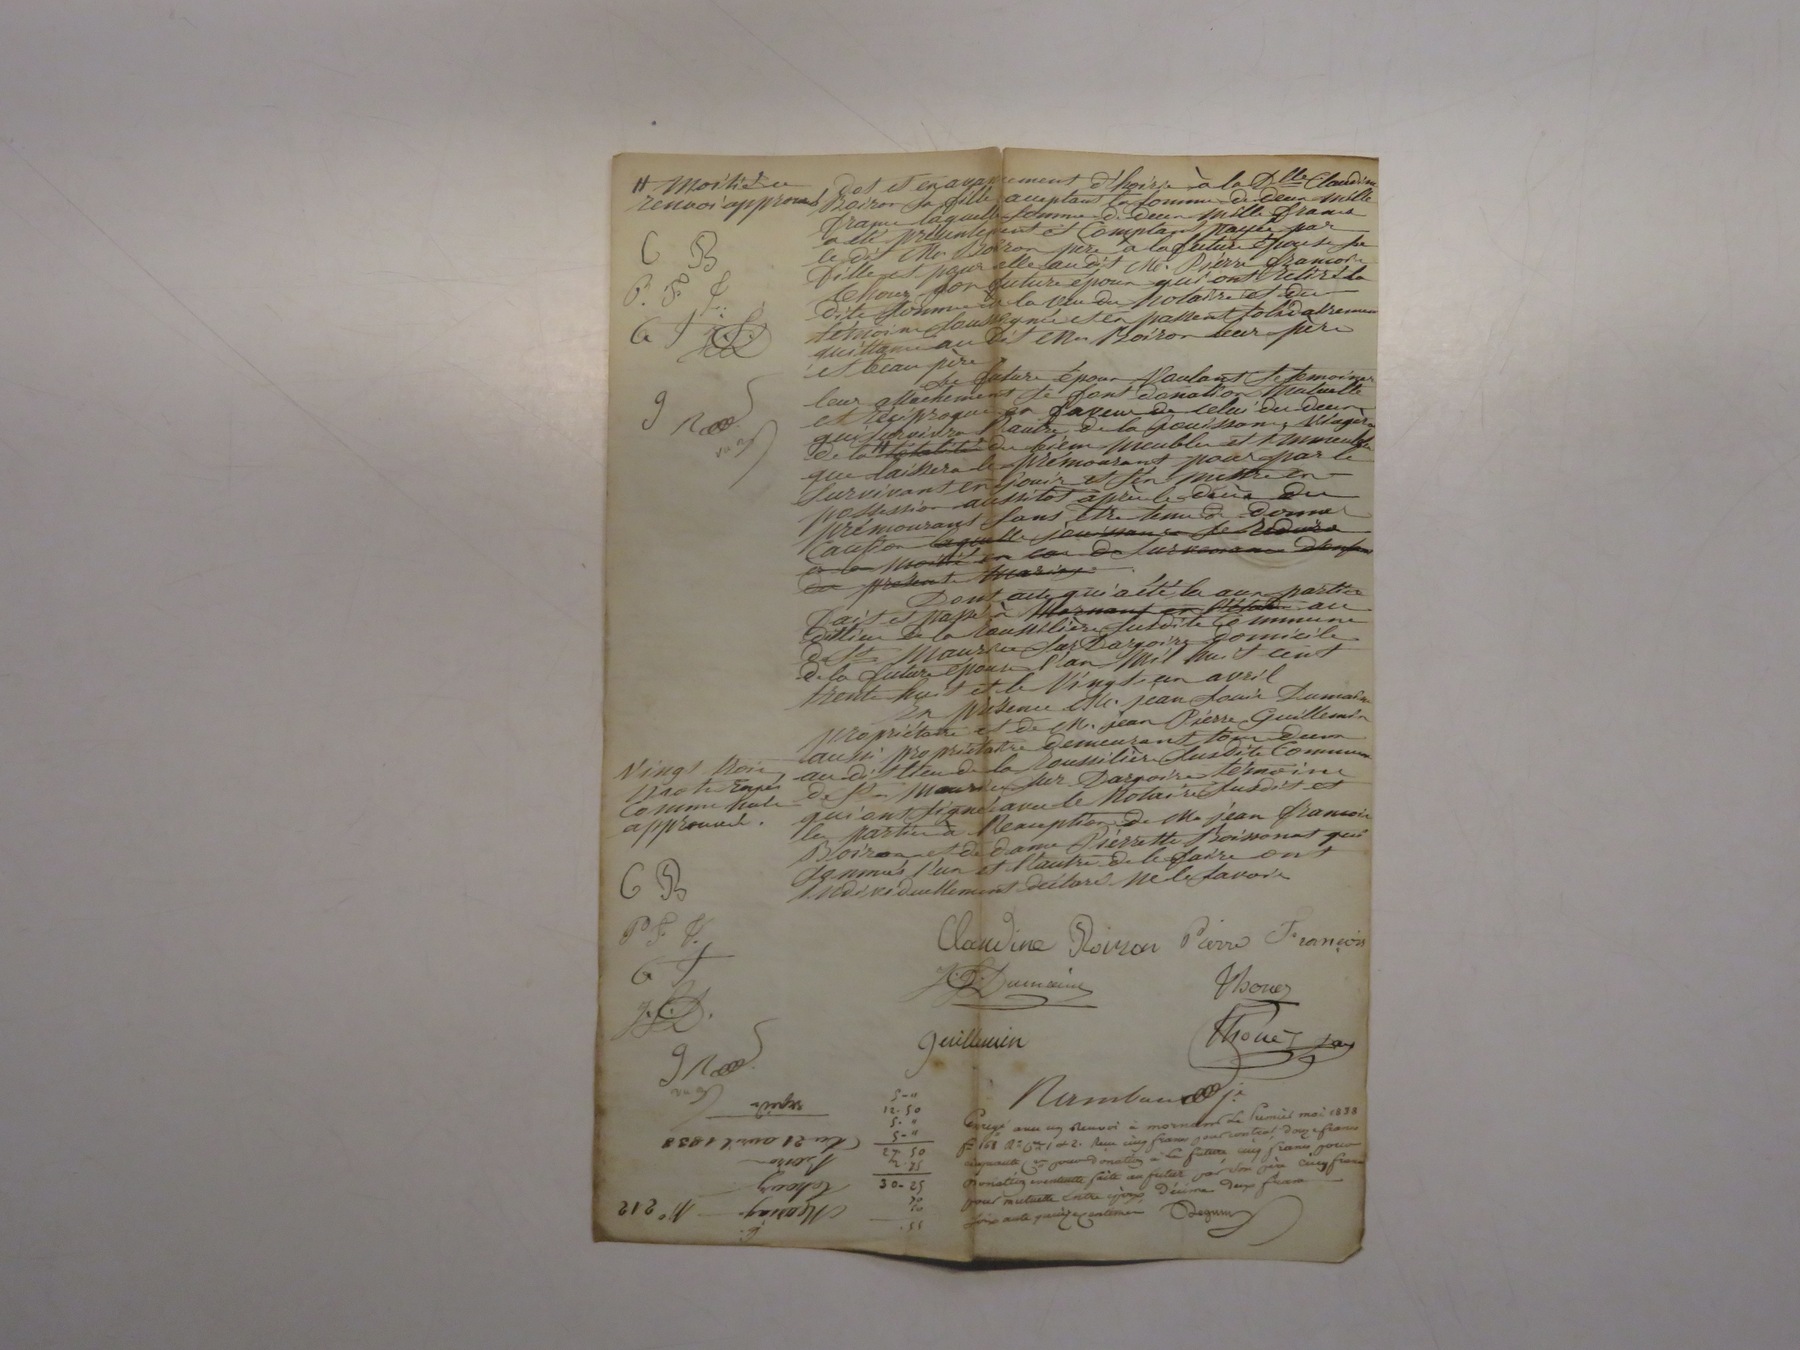 # Moitié ce
renvoi approuvé
C B
P. F T.
C T J.L.D
J R
dot et en avancement d'hoirie à la Dlle Claudine
Boiron sa fille acceptant la somme de deux mille
francs laquelle somme de deux mille francs
a été présentement et comptant payée par
le dit Mr. Boiron père à la future épouse sa
fille et pour elle au dit Mr. Pierre François
Thouez son futur époux qui ont retiré la
dite somme à la vue du Notaire et des
témoins soussignés et en passent solidairement
quittance au dit Mr Boiron leur père
et beau père
Les futurs époux Voulant se témoigner
leur attachement se font donation Mutuelle
et réciproque en faveur de celui des deux
qui survivra l'autre de la jouissance Viagère
de la # totalité des biens meubles et immeubles
que laissera le prémourant pour par le
Survivant en jouir et s'en mettre en
possession aussitôt après le décès du
prémourant sans être tenu de donner
Caution laquelle jouissance se réduira
à la moitié en cas de survenance d'enfans
du présent Mariage
Dont acte qui a été lu aux parties
Fait et passé à Mornant en l'étude au
dit lieu de la Roussilière susdite Commune
de St. Maurice sur Dargoire domicile
de la future épouse l'an Mil huit cent
trente huit et le Vingt un avril
En présence de Mr. jean Louis Dumaine
propriétaire et de Mr. jean Pierre Guillemin
aussi propriétaire demeurant tous deux
au dit lieu de la Roussilière susdite Commune
de St. Maurice sur Dargoire témoins
qui ont signé avec le Notaire susdit et
les parties à l'exception de Mr jean François
Boiron et de dame Pierrette Boissonat qui
sommés l'un et l'autre de le faire ont
individuellement déclaré Ne le savoir
Vingt trois
mots rayés
Comme nuls
approuvés.
C B
P F T.
C T
J.L.D.
J R
Claudine Boiron Pierre François
J.L. Dumaine Thouez
guillemin Thouez
Rambaud je
Enregé avec un Renvoi à mornant le Premier mai 1838
fo 168 Ro Cses 1 et 2. Reçu cinq francs pour contrat, douze francs
cinquante cmes pour donation à la future cinq francs pour
donation éventuelle faite au futur par son père cinq francs
pour mutuelle entre époux, Décime deux francs
soixante quinze centimes
No 212
Mariage
Thouez
Boiron
Du 21 avril 1838
expédié
5-"
12.50
5-"
5-"
27.50
2.75
30-25